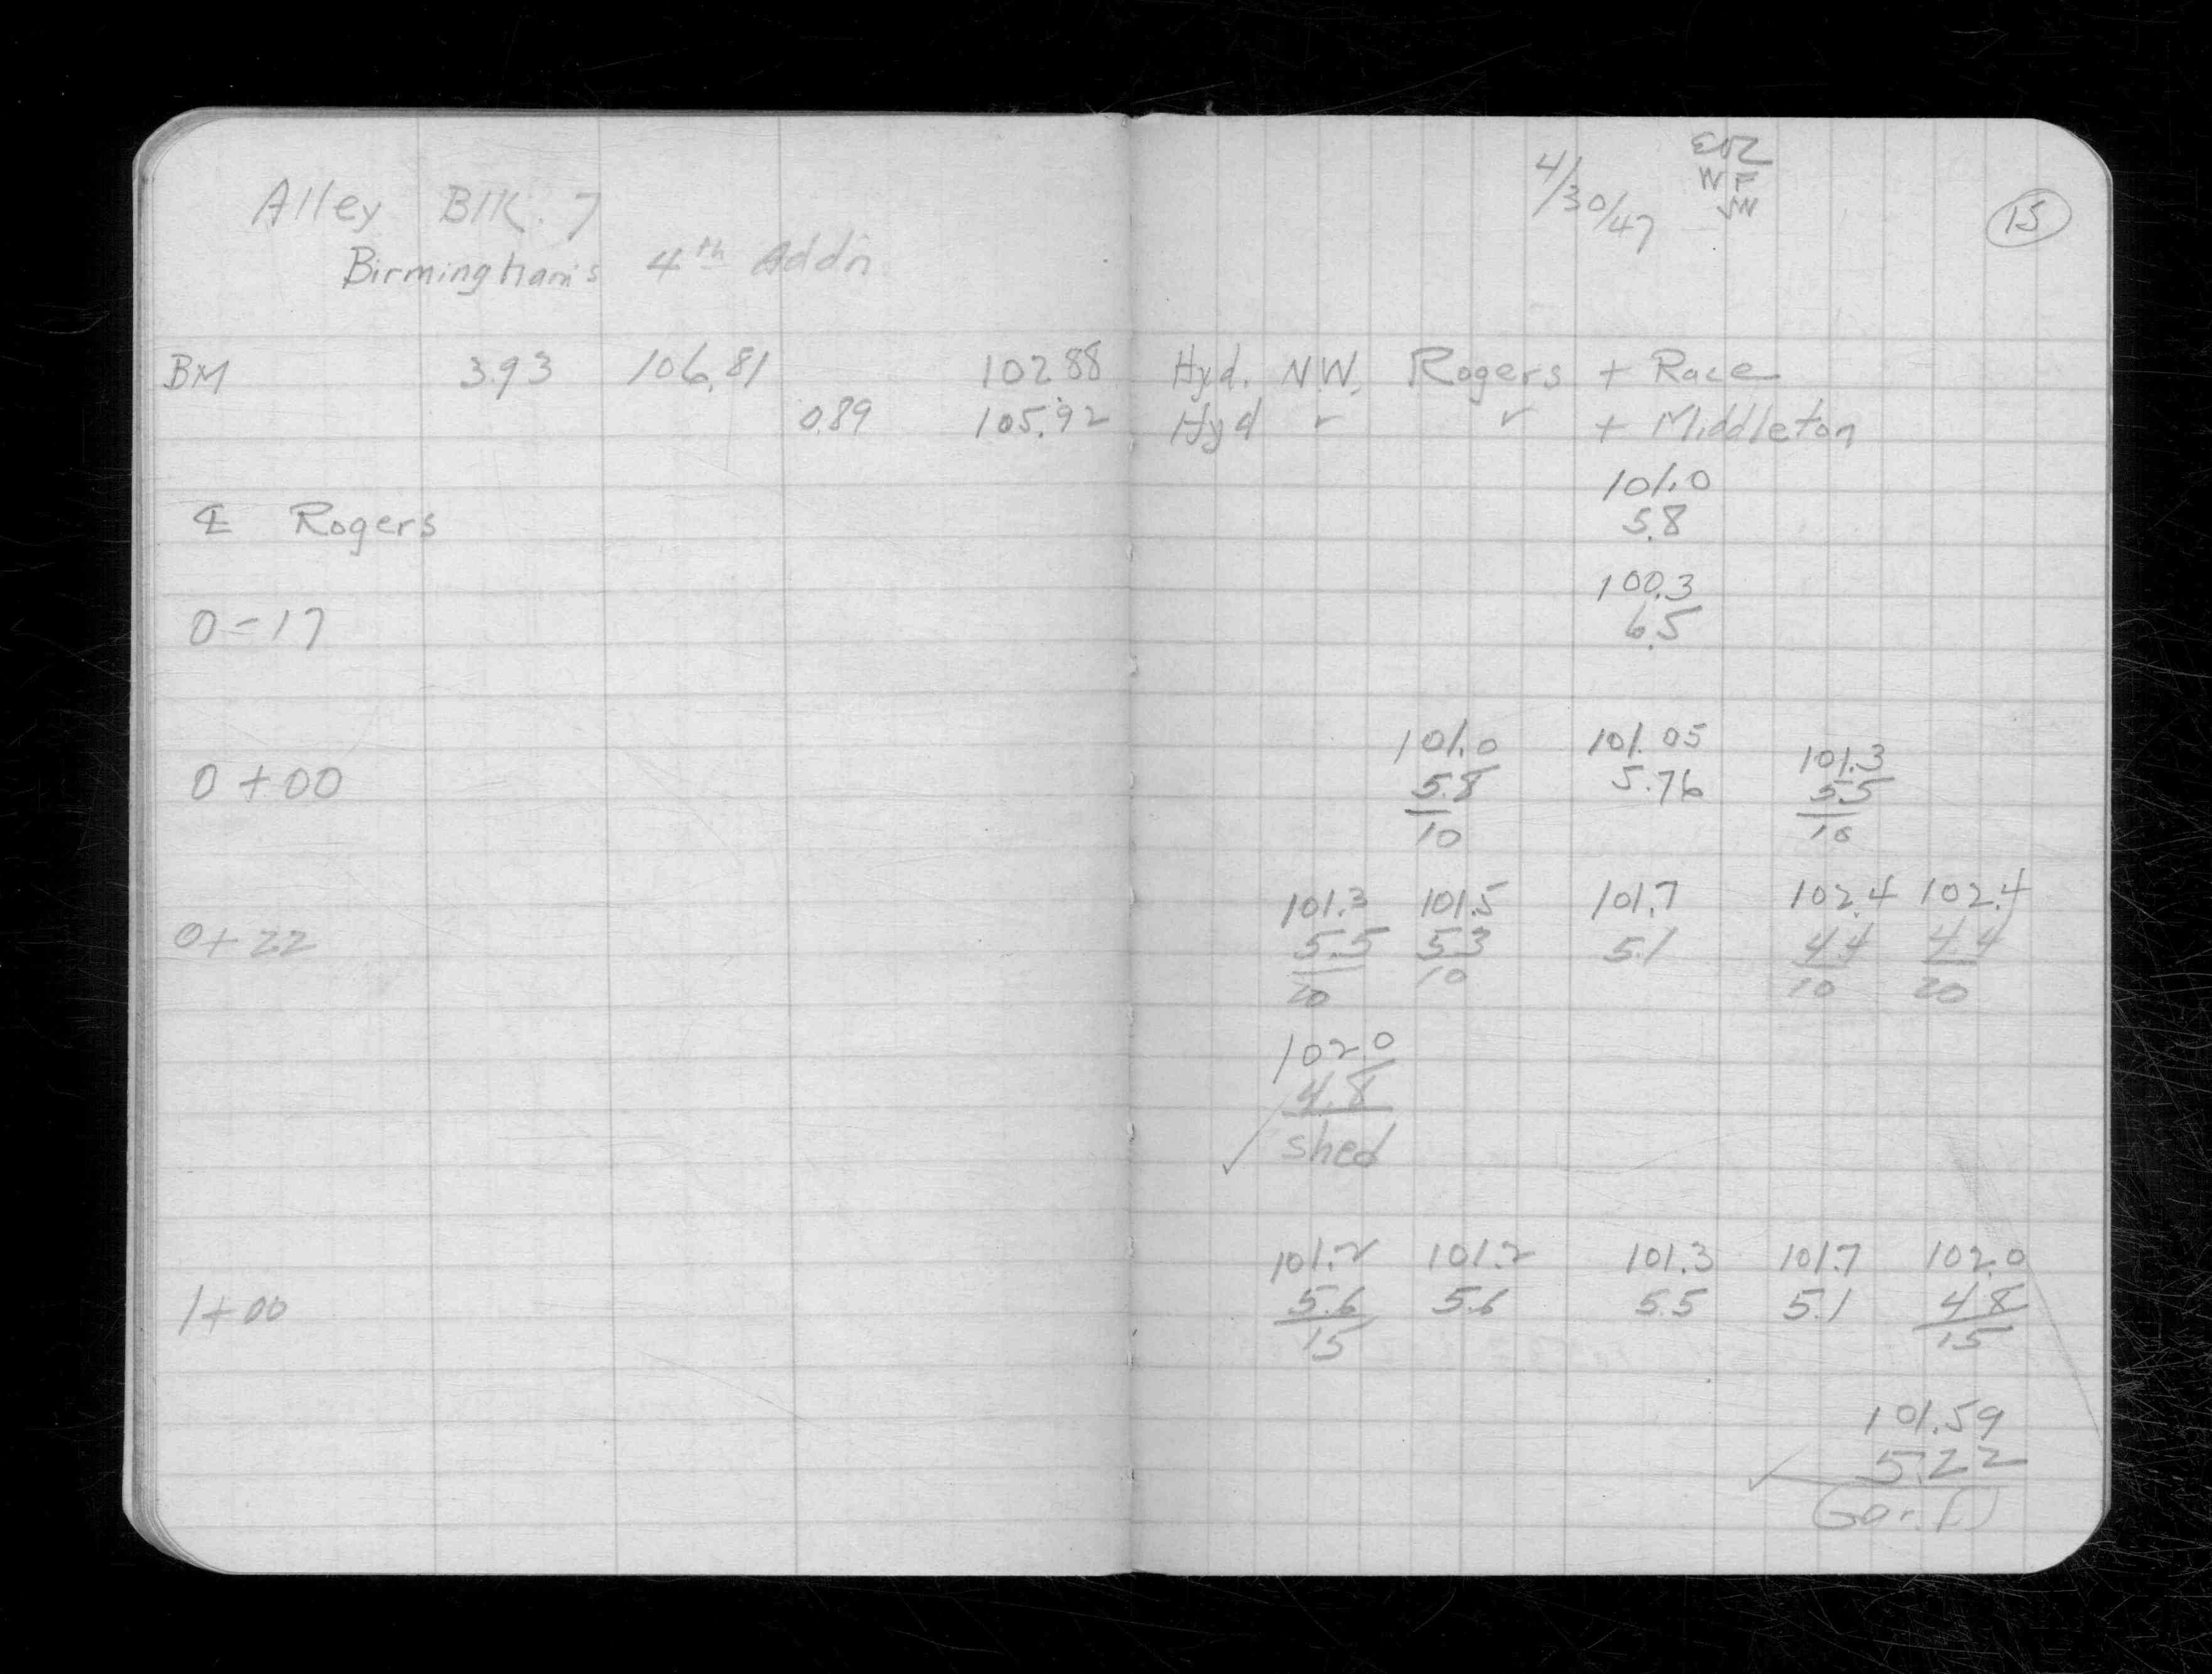 Alley Blk. 7
Birmingham's 4th Addn
4/30/47
W F
15
BM 3.93 106.81 102.88 Hyd. N.W. Rogers + Race
0.89 105.92 Hyd " " + Middleton
101.0
℄ Rogers 5.8
100.3
0-17 6.5
101.0 101.05 101.3
0+00 5.8 5.76 5.5
10 10
101.3 101.5 101.7 102.4 102.4
0+22 5.5 5.3 5.1 4.4 4.4
20 10 10 20
102.0
4.8
✓ shed
101.2 101.2 101.3 101.7 102.0
1+00 5.6 5.6 5.5 5.1 4.8
15 15
101.59
✓ 5.22
Gar.